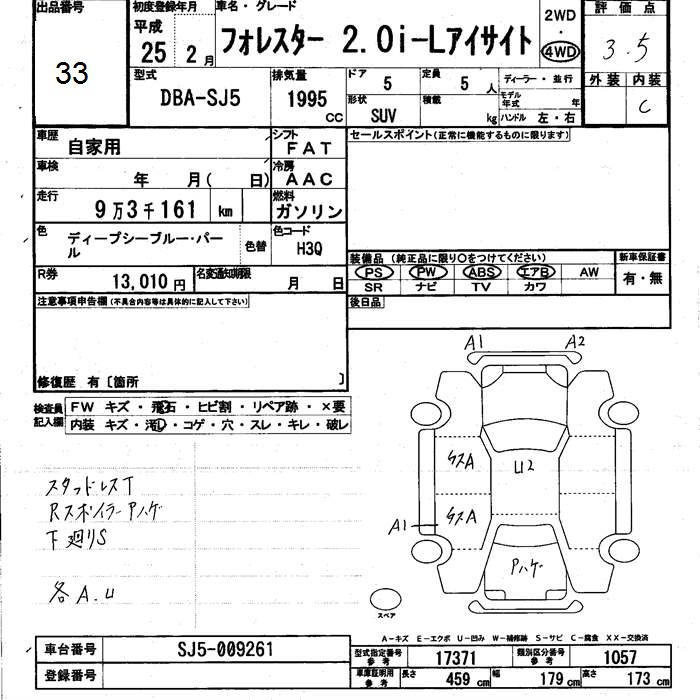 出品番号
33
初度登録年月
平成
25 2 月
車名・グレード
フォレスター 2.0i-Lアイサイト
2WD
・
4WD
評価点
3.5
外装 内装
C
型式
DBA-SJ5
排気量
1995
CC
ドア
5
定員
5 人
形状
SUV
積載
kg
ディーラー・並行
モデル年式 年
ハンドル 左・右
車歴
自家用
シフト
FAT
車検
年 月( 日)
冷房
AAC
走行
9万3千161 km
燃料
ガソリン
色
ディープシーブルー・パール
色替
色コード
H3Q
R券
13,010 円
名変通知期限
月 日
セールスポイント(正常に機能するものに限ります)
装備品(純正品に限り○をつけてください)
PS PW ABS エアB AW
SR ナビ TV カワ
新車保証書
有・無
後日品
注意事項申告欄(不具合内容等は具体的に記入して下さい)
修復歴 有〔箇所 〕
検査員記入欄
FW キズ・飛石・ヒビ割・リペア跡・×要
内装 キズ・汚れ・コゲ・穴・スレ・キレ・破レ
スタッドレスT
Rスポイラーアハゲ
下廻りS
各A.U
A1 A2
ウスA
U2
A1
ウスA
アハゲ
スペア
A-キズ E-エクボ U-凹み W-補修跡 S-サビ C-腐食 XX-交換済
車台番号
SJ5-009261
登録番号
型式指定番号 参考
17371
類別区分番号 参考
1057
車庫証明用 参考
長さ 459 cm 幅 179 cm 高さ 173 cm